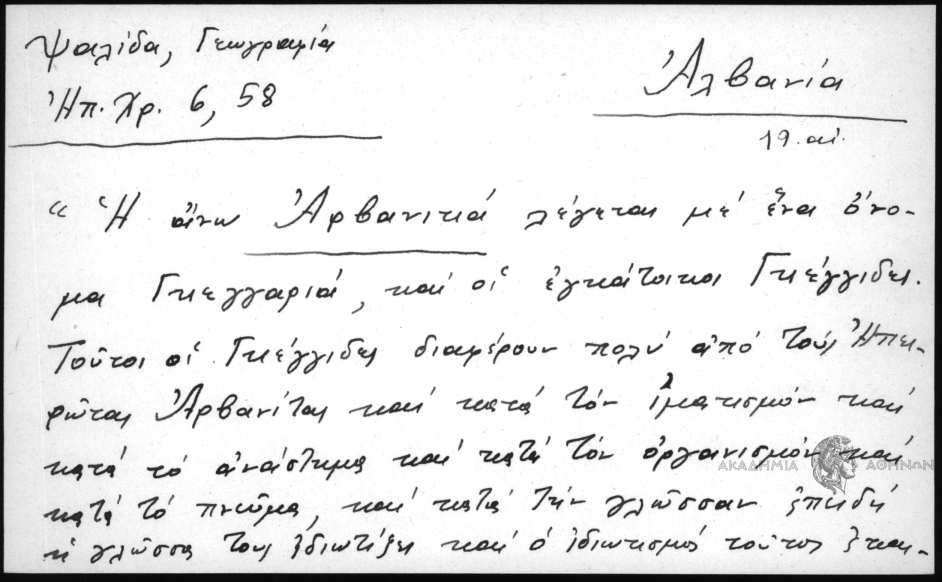 Ψαλίδα, Γεωγραφία
Ἠπ. Χρ. 6, 58
Ἀλβανία
19. αἰ.
“ Ἡ ἄνω Ἀρβανιτιά λέγεται μέ ἕνα ὄνο-
μα Γκεγγαριά, καί οἱ ἐγκάτοικοι Γκέγγιδες.
Τοῦτοι οἱ Γκέγγιδες διαφέρουν πολύ ἀπό τούς Ἠπει-
ρῶτας Ἀρβανίτας καί κατά τόν ἱματισμόν καί
κατά τό ἀνάστημα καί κατά τόν ὀργανισμόν καί
κατά τό πνεῦμα, καί κατά τήν γλῶσσαν ἐπειδή
ἡ γλῶσσα τους ἰδιωτίζει καί ὁ ἰδιωτισμός τοῦτος
ΑΚΑΔΗΜΙΑ ΑΘΗΝΩΝ